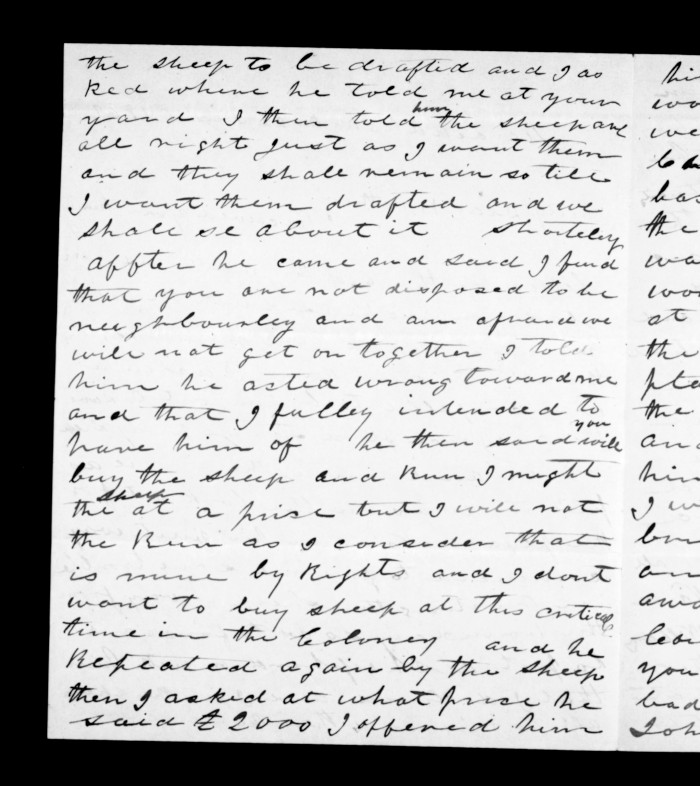 the sheep to be drafted and I as
ked where he told me at your
yard I then told him the sheep are
all right just as I want them
and they shall remain so till
I want them drafted and we
shall se about it shorteley
affter he came and said I find
that you are not disposed to be
neighbourley and am afraid we
will not get on together I told
him he acted wrong toward me
and that I fulley intended to
have him of he then said you will
buy the sheep and Run I might
the sheep at a prise but I will not
the Run as I consider that
is mine by Rights and I dont
want to buy sheep at this critical
time in the Coloney and he
Repeated again by the sheep
then I asked at what prise he
said £2000 I offered him
hi
wo
we
bas
the
wa
wo
at
the
pla
the
and
him
I w
bu
an
awa
lea
you
bad
Joh